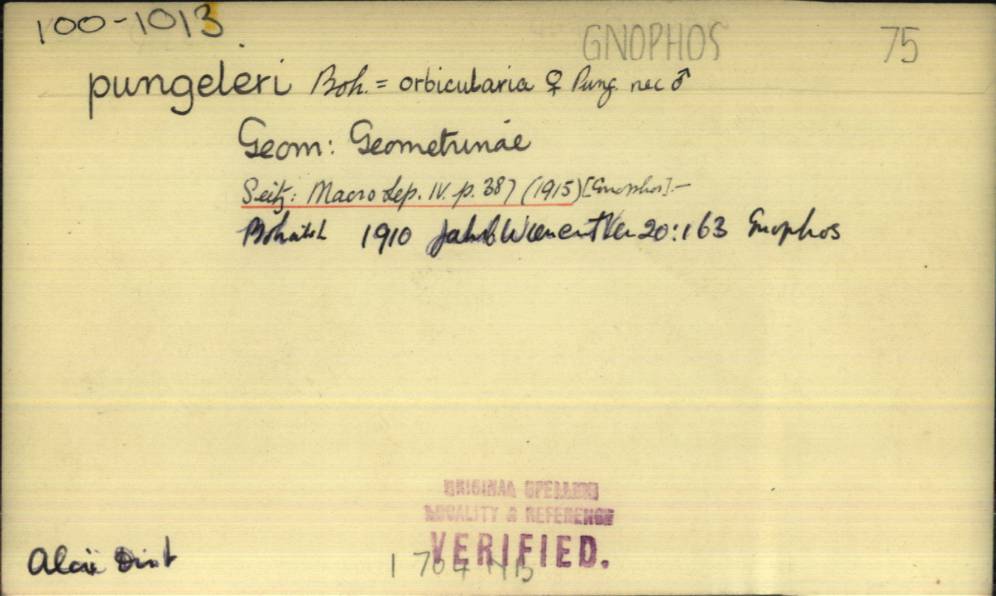 100-1013 GNOPHOS 75
pungeleri Boh. = orbicularia ♀ Pung. nec ♂
Geom: Geometrinae
Seitz: Macro Lep. IV. p. 387 (1915) [Gnophos] -
Bohatsh 1910 Jahrb Wien ent Ver 20:163 Gnophos
ORIGINAL SPELLING
LOCALITY & REFERENCE
VERIFIED.
Alai Dist